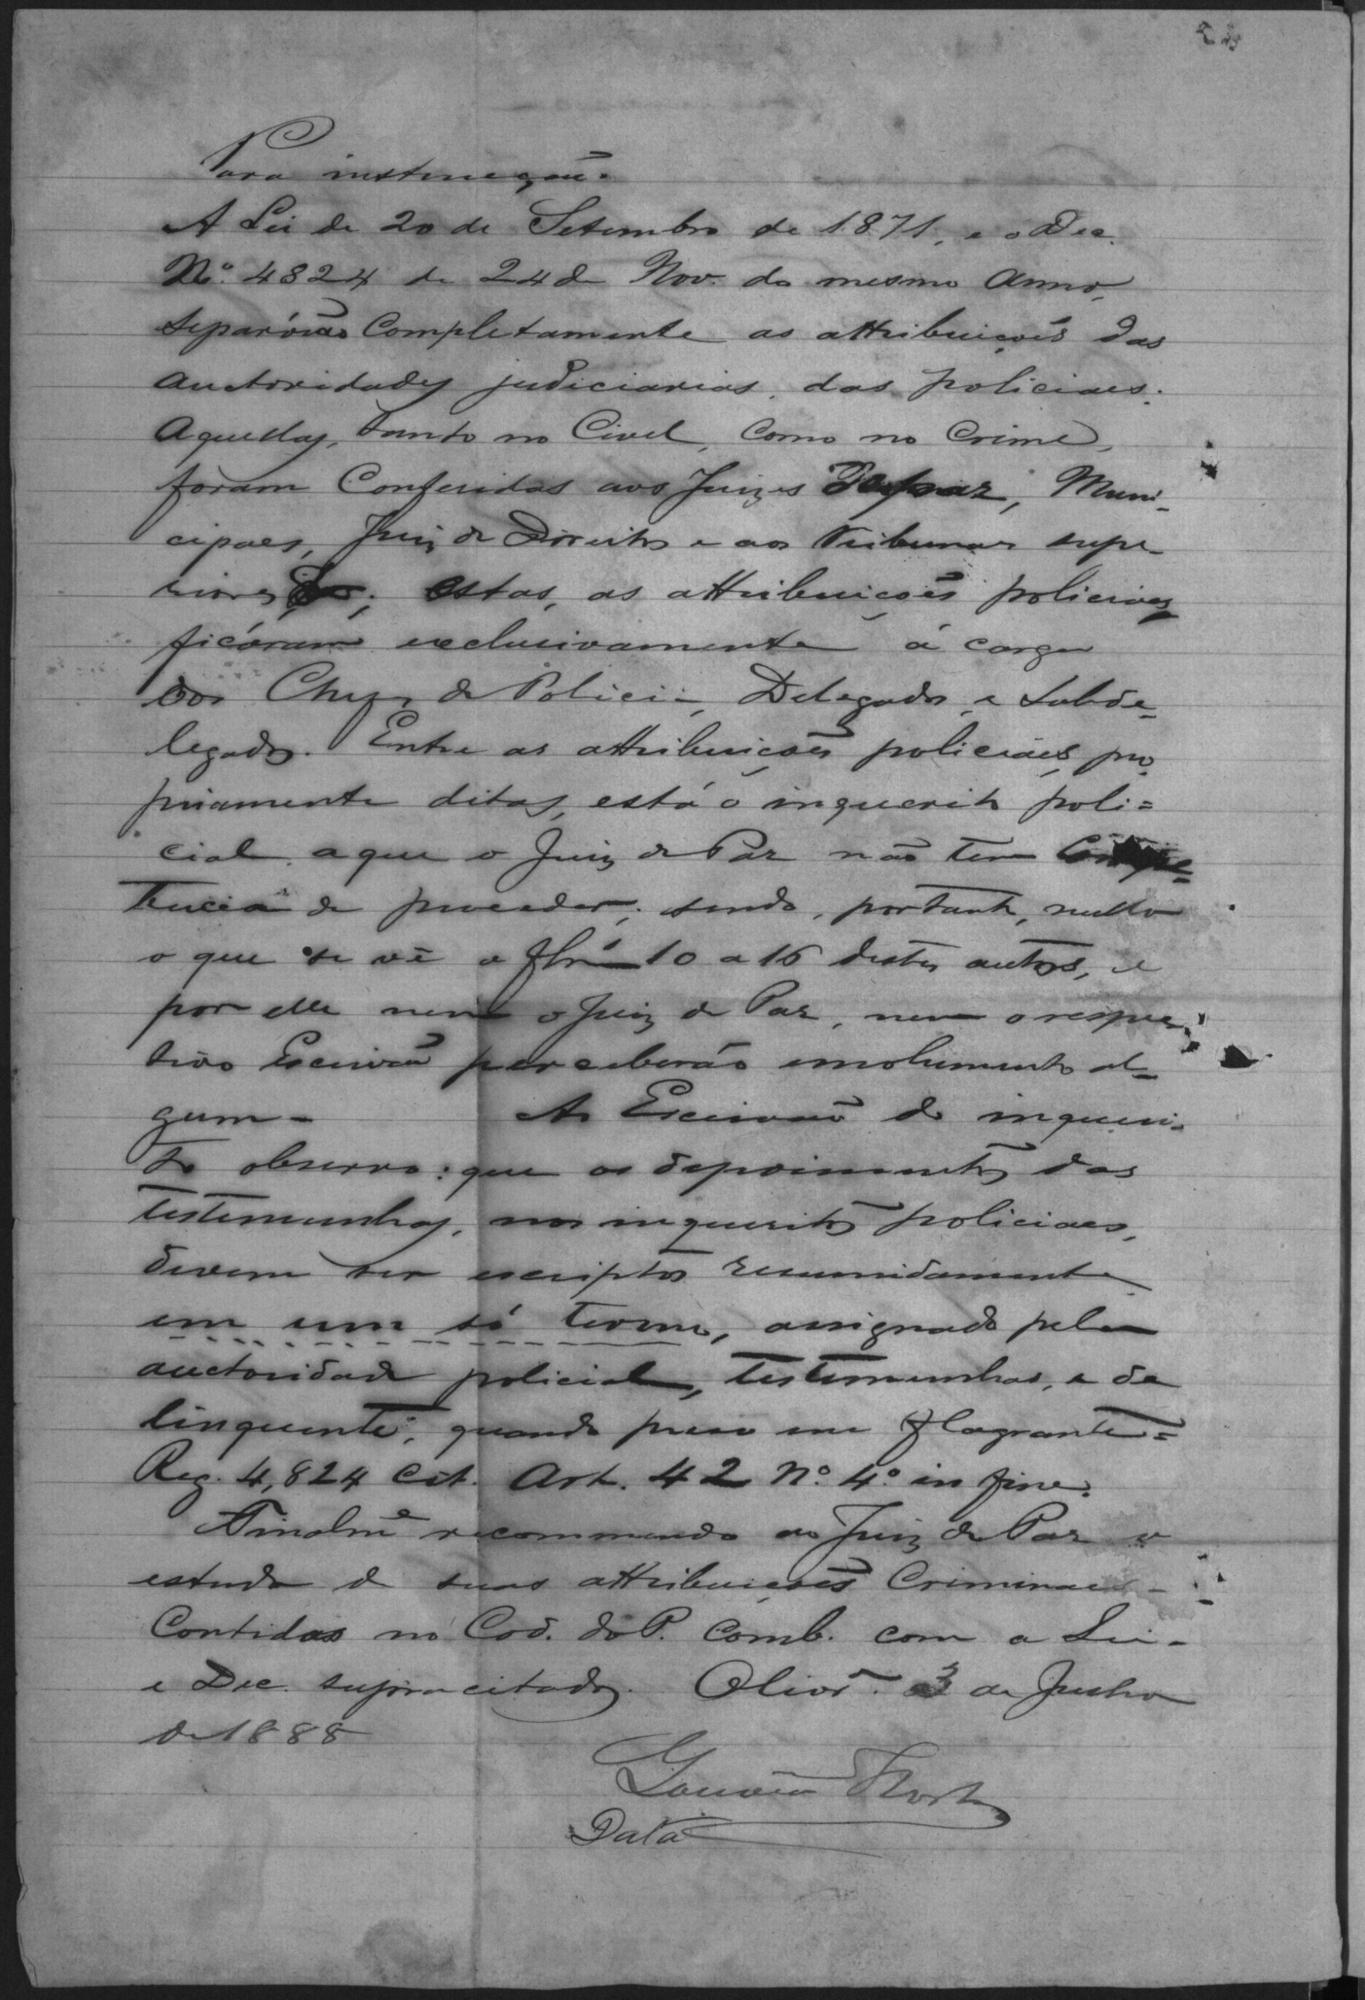 Para instrucção.
A Lei de 20 de Setembro de 1871, e o Dec.
Nº 4824 de 24 de Nov. do mesmo Anno,
separárão completamente as attribuições das
auctoridades judiciarias, das policiaes.
Aquellas, tanto no Civel, como no Crime,
foram conferidas aos Juizes de paz, Muni-
cipaes, Juiz de Direito e aos Tribunaes supe-
riores; estas, as attribuições policiaes
ficáram exclusivamente á cargo
dos Chefes de Policia, Delegados e Subde-
legados. Entre as attribuições policiaes pro
priamente ditas, está o inquerito poli=
cial, a que o Juiz de Paz não tem Compe-
tencia de proceder; sendo, portanto, nullo
o que se vê a fls 10 a 16 destes autos, e
por elle nem o Juiz de Paz, nem o respec
tivo Escrivão perceberão emolumento al-
gum - Ao Escrivão do inqueri-
to observo: que os depoimentos das
testemunhas, nos inqueritos policiaes,
devem ser escriptos resumidamente
em um só termo, assignado pela
auctoridade policial, testemunhas, e de
linquente, quando preso em flagrante=
Reg. 4,824 cit. Art. 42 Nº 4º in fine.
Finalmᵉ recommendo ao Juiz de Paz o
estudo de suas attribuições Criminaes -
Contidas no Cod. do P. comb. com a Lei -
e Dec. supracitados. Olivrª 3 de Junho
de 1888
Gouvêa Horta
Data